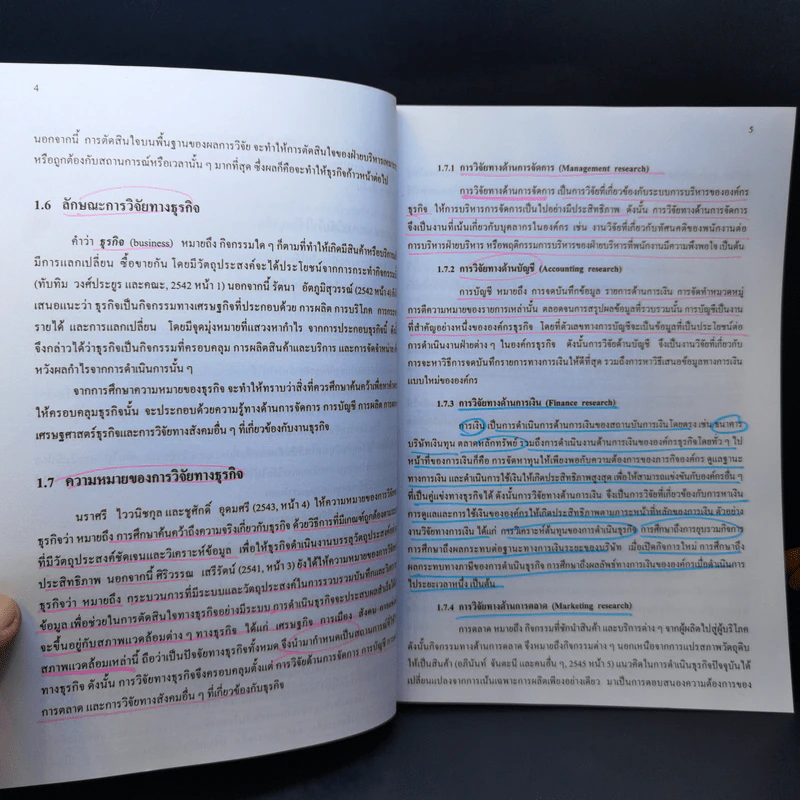 4
นอกจากนี้ การตัดสินใจบนพื้นฐานของผลการวิจัย จะทำให้การตัดสินใจของฝ่ายบริหาร
หรือถูกต้องกับสถานการณ์หรือเวลานั้น ๆ มากที่สุด ซึ่งผลก็คือจะทำให้ธุรกิจก้าวหน้าต่อไป
1.6 ลักษณะการวิจัยทางธุรกิจ
คำว่า ธุรกิจ (business) หมายถึง กิจกรรมใด ๆ ก็ตามที่ทำให้เกิดมีสินค้าหรือบริการ
มีการแลกเปลี่ยน ซื้อขายกัน โดยมีวัตถุประสงค์จะได้ประโยชน์จากการกระทำกิจกรรม
(ทับทิม วงศ์ประยูร และคณะ, 2542 หน้า 1) นอกจากนี้ รัตนา อัตภูมิสุวรรณ์ (2542 หน้า
เสนอแนะว่า ธุรกิจเป็นกิจกรรมทางเศรษฐกิจที่ประกอบด้วย การผลิต การบริโภค การกระ
รายได้ และการแลกเปลี่ยน โดยมีจุดมุ่งหมายที่แสวงหากำไร จากการประกอบธุรกิจนี้
จึงกล่าวได้ว่าธุรกิจเป็นกิจกรรมที่ครอบคลุม การผลิตสินค้าและบริการ และการจัดจำหน่าย
หวังผลกำไรจากการดำเนินการนั้น ๆ
จากการศึกษาความหมายของธุรกิจ จะทำให้ทราบว่าสิ่งที่ควรศึกษาค้นคว้าเพื่อทำ
ให้ครอบคลุมธุรกิจนั้น จะประกอบด้วยความรู้ทางด้านการจัดการ การบัญชี การผลิต การ
เศรษฐศาสตร์ธุรกิจและการวิจัยทางสังคมอื่น ๆ ที่เกี่ยวข้องกับงานธุรกิจ
1.7 ความหมายของการวิจัยทางธุรกิจ
นราศรี ไววนิชกุล และชูศักดิ์ อุดมศรี (2543, หน้า 4) ให้ความหมายของการวิจัย
ธุรกิจว่า หมายถึง การศึกษาค้นคว้าถึงความจริงเกี่ยวกับธุรกิจ ด้วยวิธีการที่มีเกณฑ์ถูกต้องตาม
ที่มีวัตถุประสงค์ชัดเจนและวิเคราะห์ข้อมูล เพื่อให้ธุรกิจดำเนินงานบรรลุวัตถุประสงค์
ประสิทธิภาพ นอกจากนี้ ศิริวรรณ เสรีรัตน์ (2541, หน้า 3) ยังได้ให้ความหมายของการวิจัย
ธุรกิจว่า หมายถึง กระบวนการที่มีระบบและวัตถุประสงค์ในการรวบรวมบันทึกและวิเคราะห์
ข้อมูล เพื่อช่วยในการตัดสินใจทางธุรกิจอย่างมีระบบ การดำเนินธุรกิจจะประสบผลสำเร็จได้
จะขึ้นอยู่กับสภาพแวดล้อมต่าง ๆ ทางธุรกิจ ได้แก่ เศรษฐกิจ การเมือง สังคม
สภาพแวดล้อมเหล่านี้ ถือว่าเป็นปัจจัยทางธุรกิจทั้งหมด จึงนำมากำหนดเป็นสถานการณ์
ทางธุรกิจ ดังนั้น การวิจัยทางธุรกิจจึงครอบคลุมตั้งแต่ การวิจัยด้านการจัดการ การบัญชี
การตลาด และการวิจัยทางสังคมอื่น ๆ ที่เกี่ยวข้องกับธุรกิจ
5
1.7.1 การวิจัยทางด้านการจัดการ (Management research)
การวิจัยทางด้านการจัดการ เป็นการวิจัยที่เกี่ยวข้องกับระบบการบริหารขององค์กร
ธุรกิจ ให้การบริหารการจัดการเป็นไปอย่างมีประสิทธิภาพ ดังนั้น การวิจัยทางด้านการจัดการ
จึงเป็นงานที่เน้นเกี่ยวกับบุคลากรในองค์กร เช่น งานวิจัยที่เกี่ยวกับทัศนคติของพนักงานต่อ
การบริหารฝ่ายบริหาร หรือพฤติกรรมการบริหารของฝ่ายบริหารที่พนักงานมีความพึงพอใจ เป็นต้น
1.7.2 การวิจัยทางด้านบัญชี (Accounting research)
การบัญชี หมายถึง การจดบันทึกข้อมูล รายการด้านการเงิน การจัดทำหมวดหมู่
การตีความหมายของรายการเหล่านั้น ตลอดจนการสรุปผลข้อมูลที่รวบรวมนั้น การบัญชีเป็นงาน
ที่สำคัญอย่างหนึ่งขององค์กรธุรกิจ โดยที่ตัวเลขทางการบัญชีจะเป็นข้อมูลที่เป็นประโยชน์ต่อ
การดำเนินงานฝ่ายต่าง ๆ ในองค์กรธุรกิจ ดังนั้นการวิจัยด้านบัญชี จึงเป็นงานวิจัยที่เกี่ยวกับ
การจะหาวิธีการจดบันทึกรายการทางการเงินให้ดีที่สุด รวมถึงการหาวิธีเสนอข้อมูลทางการเงิน
แบบใหม่ขององค์กร
1.7.3 การวิจัยทางด้านการเงิน (Finance research)
การเงิน เป็นการดำเนินการด้านการเงินของสถาบันการเงินโดยตรง เช่น ธนาคาร
บริษัทเงินทุน ตลาดหลักทรัพย์ รวมถึงการดำเนินงานด้านการเงินขององค์กรธุรกิจโดยทั่ว ๆ ไป
หน้าที่ของการเงินก็คือ การจัดหาทุนให้เพียงพอกับความต้องการของภารกิจองค์กร ดูแลฐานะ
ทางการเงินและการใช้จ่ายเงินให้เกิดประสิทธิภาพสูงสุด เพื่อให้สามารถแข่งขันกับองค์กรอื่น ๆ
ที่เป็นคู่แข่งทางธุรกิจได้ ดังนั้นการวิจัยทางด้านการเงิน จึงเป็นการวิจัยที่เกี่ยวข้องกับการหาเงิน
การดูแลและการใช้เงินขององค์กรให้เกิดประสิทธิภาพตามภาระหน้าที่หลักของการเงิน ตัวอย่าง
งานวิจัยทางการเงิน ได้แก่ การวิเคราะห์ต้นทุนของการดำเนินธุรกิจ การศึกษาถึงการยุบรวมกิจการ
การศึกษาถึงผลกระทบต่อฐานะทางการเงินระยะยาวของบริษัท เมื่อเปิดกิจการใหม่ การศึกษาถึง
ผลกระทบทางภาษีของการดำเนินธุรกิจ การศึกษาถึงผลลัพธ์ทางการเงินขององค์กรเมื่อดำเนินการ
ไประยะเวลาหนึ่ง เป็นต้น
1.7.4 การวิจัยทางด้านการตลาด (Marketing research)
การตลาด หมายถึง กิจกรรมที่ชักนำสินค้า และบริการต่าง ๆ จากผู้ผลิตไปสู่ผู้บริโภค
ดังนั้นกิจกรรมทางด้านการตลาด จึงหมายถึงกิจกรรมต่าง ๆ นอกเหนือจากการแปรสภาพวัตถุดิบ
ให้เป็นสินค้า (อภินันท์ จันตะนี และคนอื่น ๆ, 2545 หน้า 5) แนวคิดในการดำเนินธุรกิจปัจจุบันได้
เปลี่ยนแปลงจากการเน้นเฉพาะการผลิตเพียงอย่างเดียว มาเป็นการตอบสนองความต้องการของ